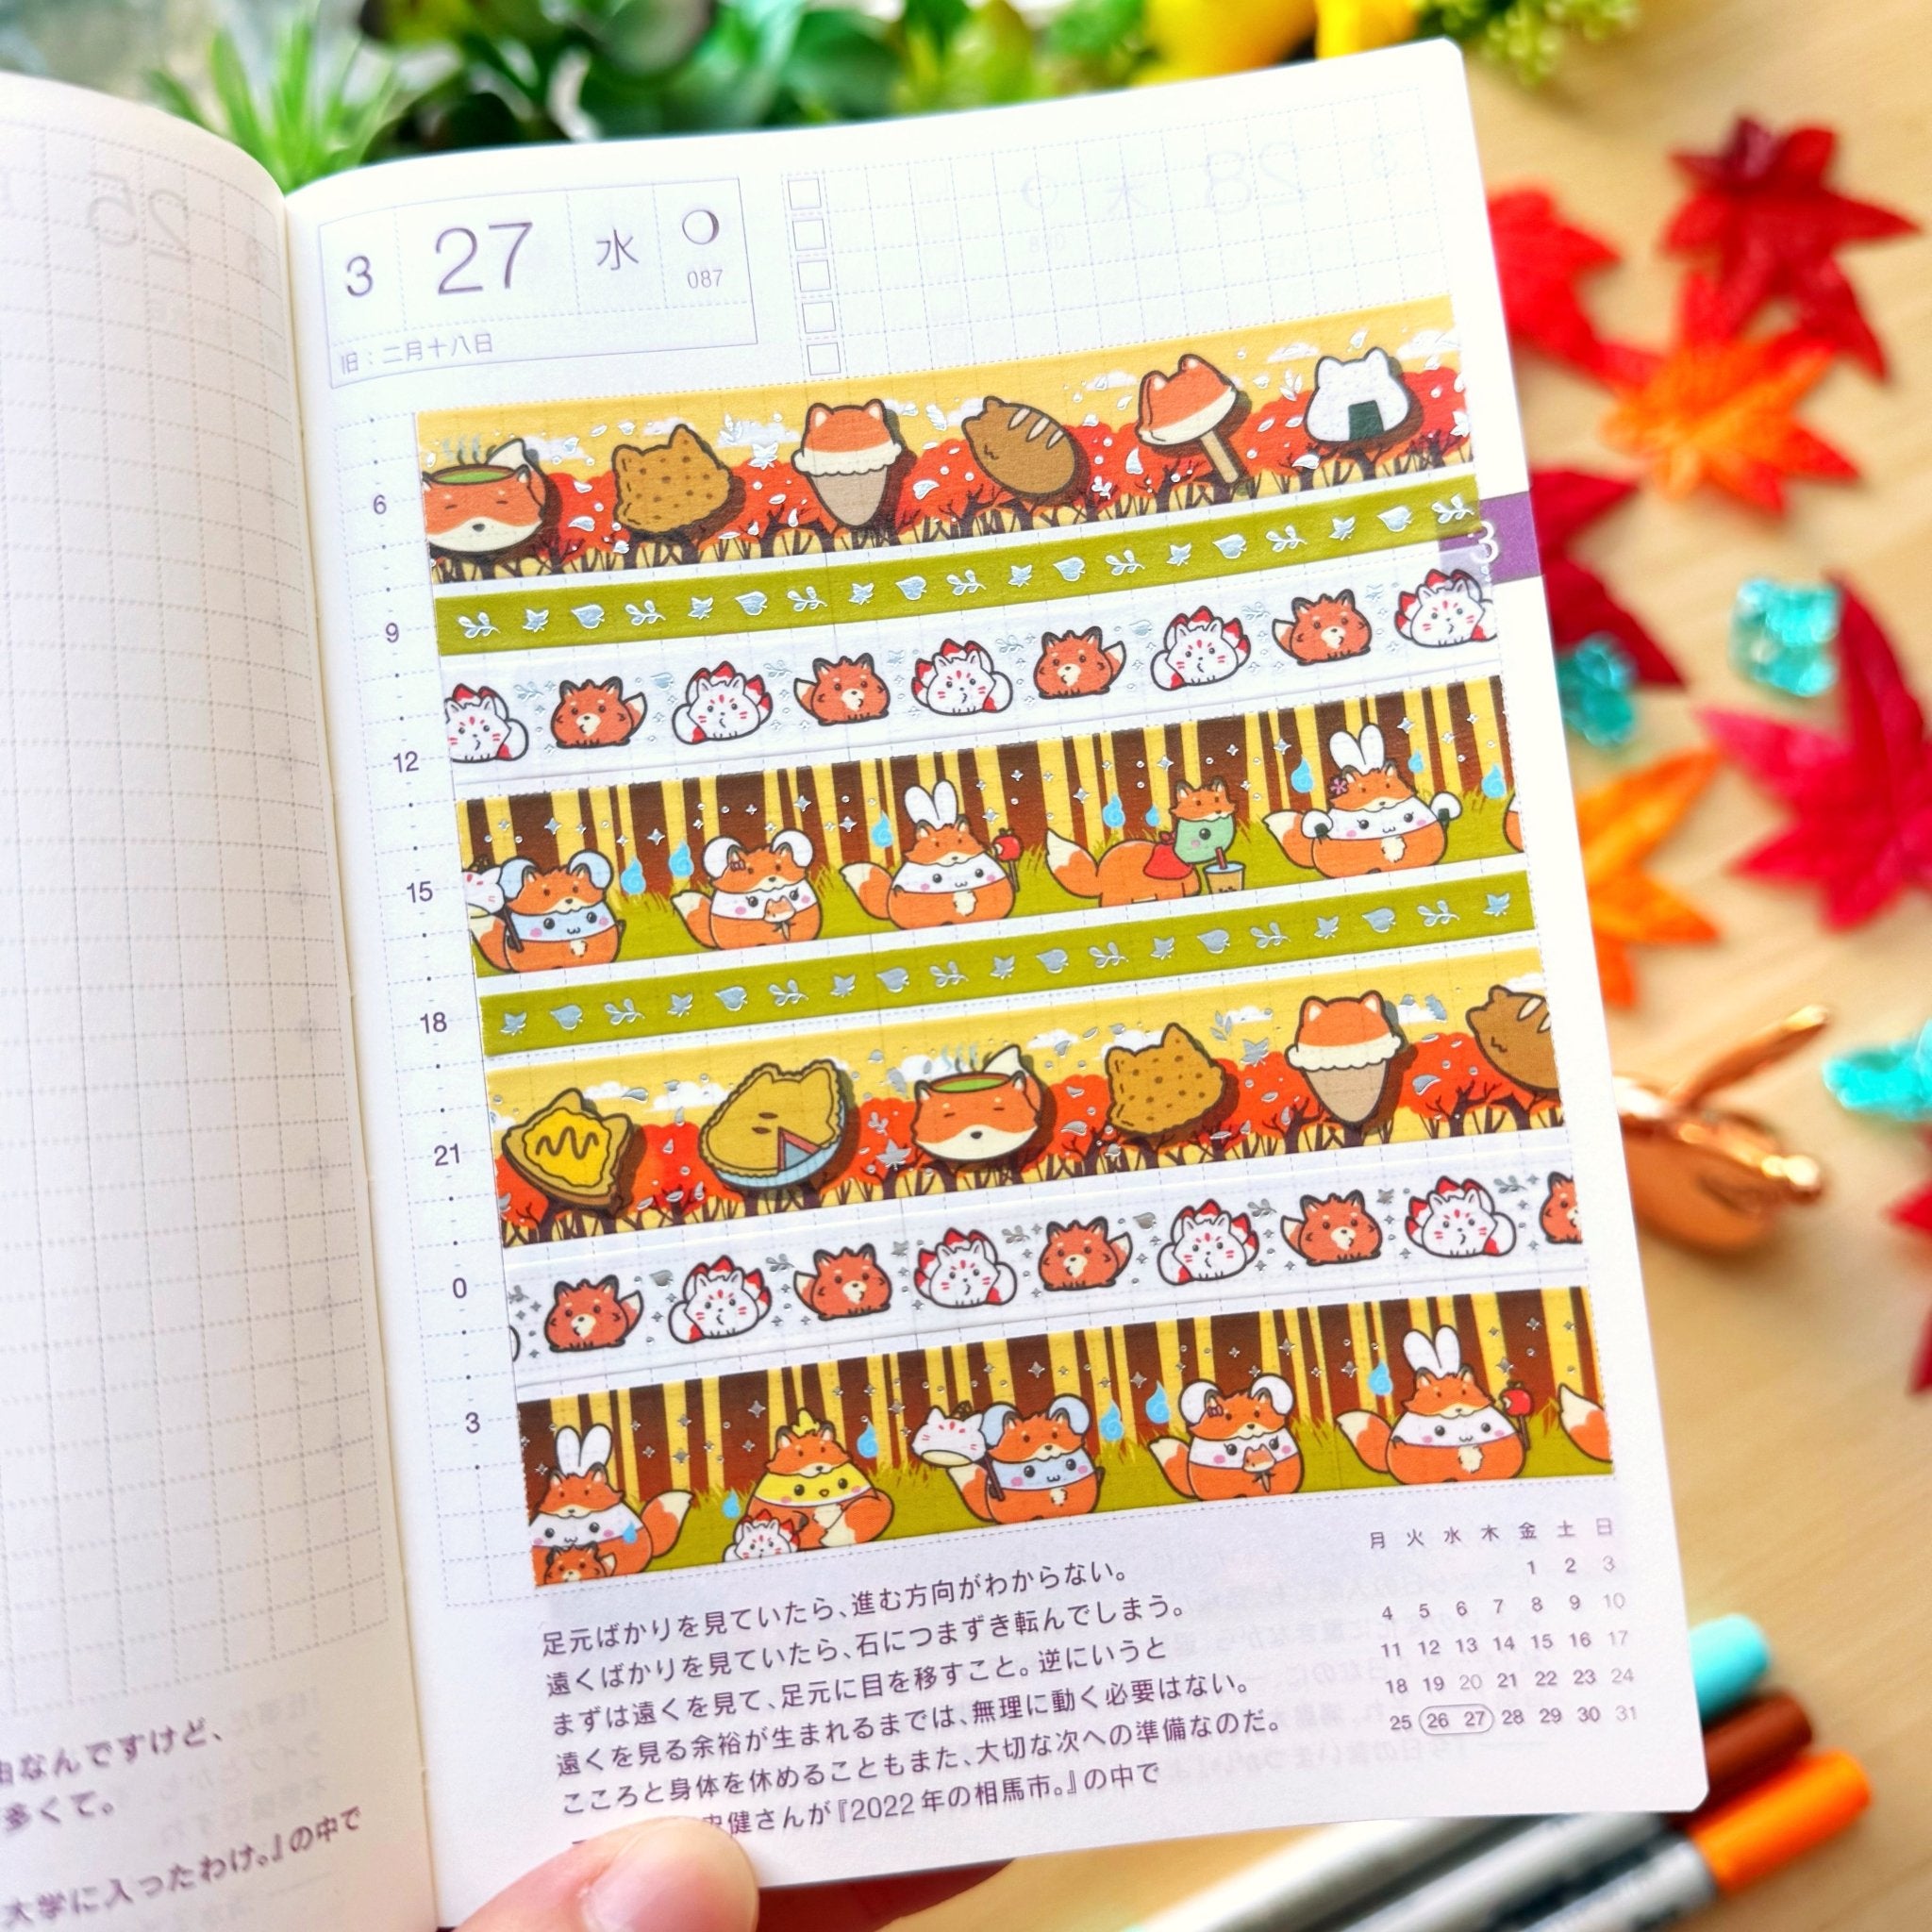 3 27 水
087
旧：二月十八日
3
6
9
12
15
18
21
0
3
足元ばかりを見ていたら、進む方向がわからない。
遠くばかりを見ていたら、石につまずき転んでしまう。
まずは遠くを見て、足元に目を移すこと。逆にいうと
遠くを見る余裕が生まれるまでは、無理に動く必要はない。
こころと身体を休めることもまた、大切な次への準備なのだ。
健さんが『2022年の相馬市。』の中で
月 火 水 木 金 土 日
1 2 3
4 5 6 7 8 9 10
11 12 13 14 15 16 17
18 19 20 21 22 23 24
25 26 27 28 29 30 31
なんですけど、
多くて。
大学に入ったわけ。』の中で